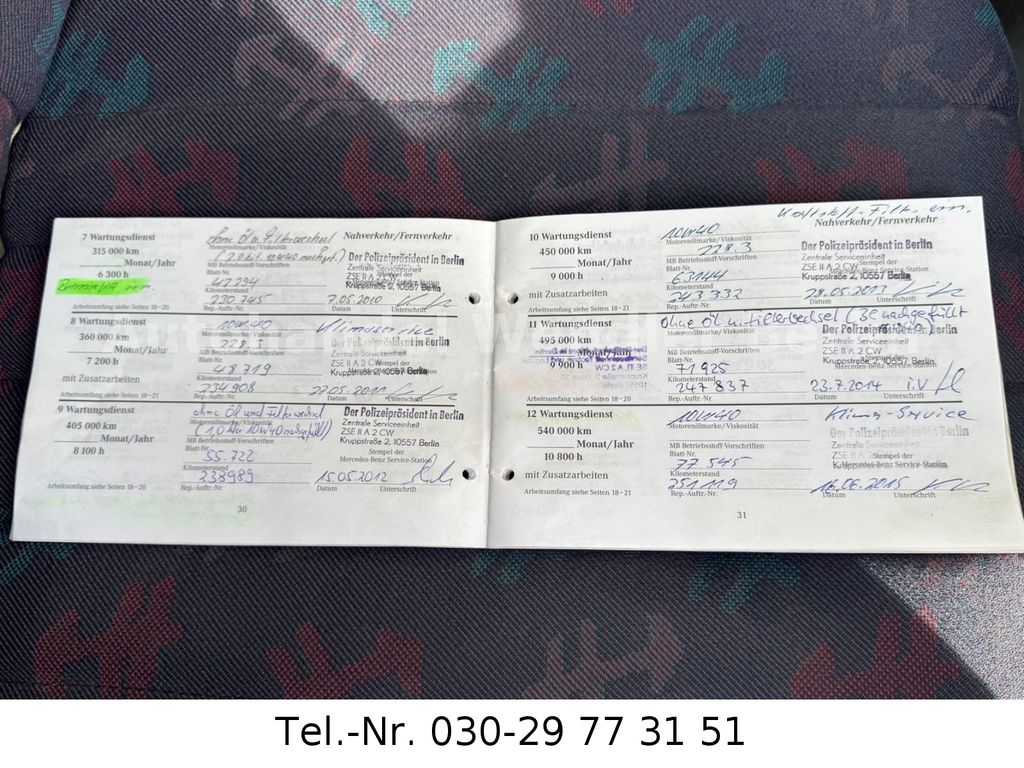 7 Wartungsdienst
315 000 km
Monat/Jahr
6 300 h
Arbeitsumfang siehe Seiten 18-20
ohne Öl u. Filterwechsel
Motorenölmarke/Viskosität
MB Betriebsstoff-Vorschriften
Blatt-Nr.
42 294
Kilometerstand
230 745
Rep.-Auftr.-Nr.
Nahverkehr/Fernverkehr
Der Polizeipräsident in Berlin
Zentrale Serviceeinheit
ZSE II A 2 CW
Stempel der
Kruppstraße 2, 10557 Berlin
7.05.2010
Datum
Unterschrift
8 Wartungsdienst
360 000 km
Monat/Jahr
7 200 h
mit Zusatzarbeiten
Arbeitsumfang siehe Seiten 18-21
10W40
Motorenölmarke/Viskosität
228.3
MB Betriebsstoff-Vorschriften
Blatt-Nr.
48719
Kilometerstand
234 908
Rep.-Auftr.-Nr.
Klimaservice
Der Polizeipräsident in Berlin
Zentrale Serviceeinheit
ZSE II A 2 CW
Kruppstraße 2, 10557 Berlin
27.05.2011
Datum
Unterschrift
9 Wartungsdienst
405 000 km
Monat/Jahr
8 100 h
Arbeitsumfang siehe Seiten 18-20
ohne Öl und Filterwechsel
(1,0 Ltr 10W40 nachgefüllt)
Motorenölmarke/Viskosität
MB Betriebsstoff-Vorschriften
Blatt-Nr.
55.722
Kilometerstand
238989
Rep.-Auftr.-Nr.
Der Polizeipräsident in Berlin
Zentrale Serviceeinheit
ZSE II A 2 CW
Kruppstraße 2, 10557 Berlin
Stempel der
Mercedes-Benz Service-Station
15.05.2012
Datum
Unterschrift
30
10 Wartungsdienst
450 000 km
Monat/Jahr
9 000 h
mit Zusatzarbeiten
Arbeitsumfang siehe Seiten 18-21
10W40
Motorenölmarke/Viskosität
228.3
MB Betriebsstoff-Vorschriften
Blatt-Nr.
63144
Kilometerstand
243 332
Rep.-Auftr.-Nr.
Nahverkehr/Fernverkehr
Der Polizeipräsident in Berlin
Zentrale Serviceeinheit
ZSE II A 2 CW
Stempel der
Kruppstraße 2, 10557 Berlin
28.05.2013
Datum
Unterschrift
11 Wartungsdienst
495 000 km
Monat/Jahr
9 900 h
Arbeitsumfang siehe Seiten 18-20
Motorenölmarke/Viskosität
MB Betriebsstoff-Vorschriften
Blatt-Nr.
71925
Kilometerstand
247 837
Rep.-Auftr.-Nr.
Der Polizeipräsident in Berlin
Zentrale Serviceeinheit
ZSE II A 2 CW
Kruppstraße 2, 10557 Berlin
23.7.2014 i.V
Datum
Unterschrift
12 Wartungsdienst
540 000 km
Monat/Jahr
10 800 h
mit Zusatzarbeiten
Arbeitsumfang siehe Seiten 18-21
10W40
Motorenölmarke/Viskosität
MB Betriebsstoff-Vorschriften
Blatt-Nr.
77 545
Kilometerstand
251119
Rep.-Auftr.-Nr.
Klima-Service
Der Polizeipräsident in Berlin
Zentrale Serviceeinheit
Stempel der
Mercedes-Benz Service-Station
16.06.2015
Datum
Unterschrift
31
Tel.-Nr. 030-29 77 31 51